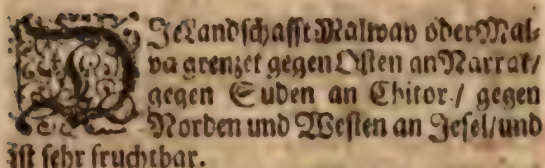 DJe Landschafft Malway oder Mal-
va grenzet gegen Osten an Narrat/
gegen Suden an Chitor / gegen
Norden und Westen an Jesel/ und
ist sehr fruchtbar.